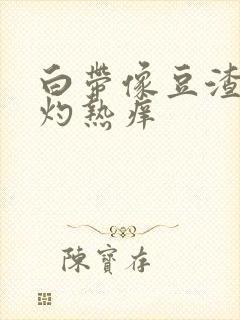 白帶像豆渣
灼熱痒
陳寶存